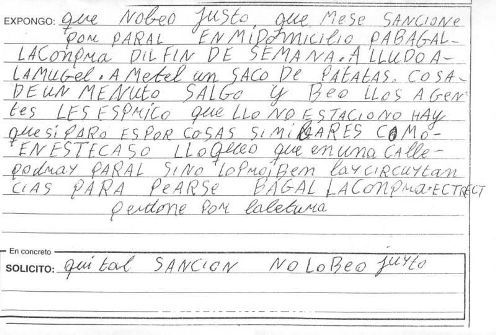 EXPONGO: que NOBEO JUSTO que MESE SANCIONE
POR PARAL EN MI DOMICILIO PABAGAL-
LACONPRA DIL FIN DE SEMANA. A LLUDO A-
LAMUGEL. A METEL UN SACO DE PATATAS. COSA-
DE UN MENUTO SALGO Y BEO LLOS AGEN-
tes LES ESPRICO que LLO NO ESTACIONO HAY
que SI PARO ES POR COSAS SIMILARES COMO-
EN ESTE CASO LLO que en una CALLE-
podray PARAL SI NO LO PROJBEN LAY CIRCUYTAN
CIAS PARA PEARSE BAGAL LACONPRA. ECTRECT
Perdone por laletura
En concreto
SOLICITO: quital SANCION NO LO BEO JUYTO